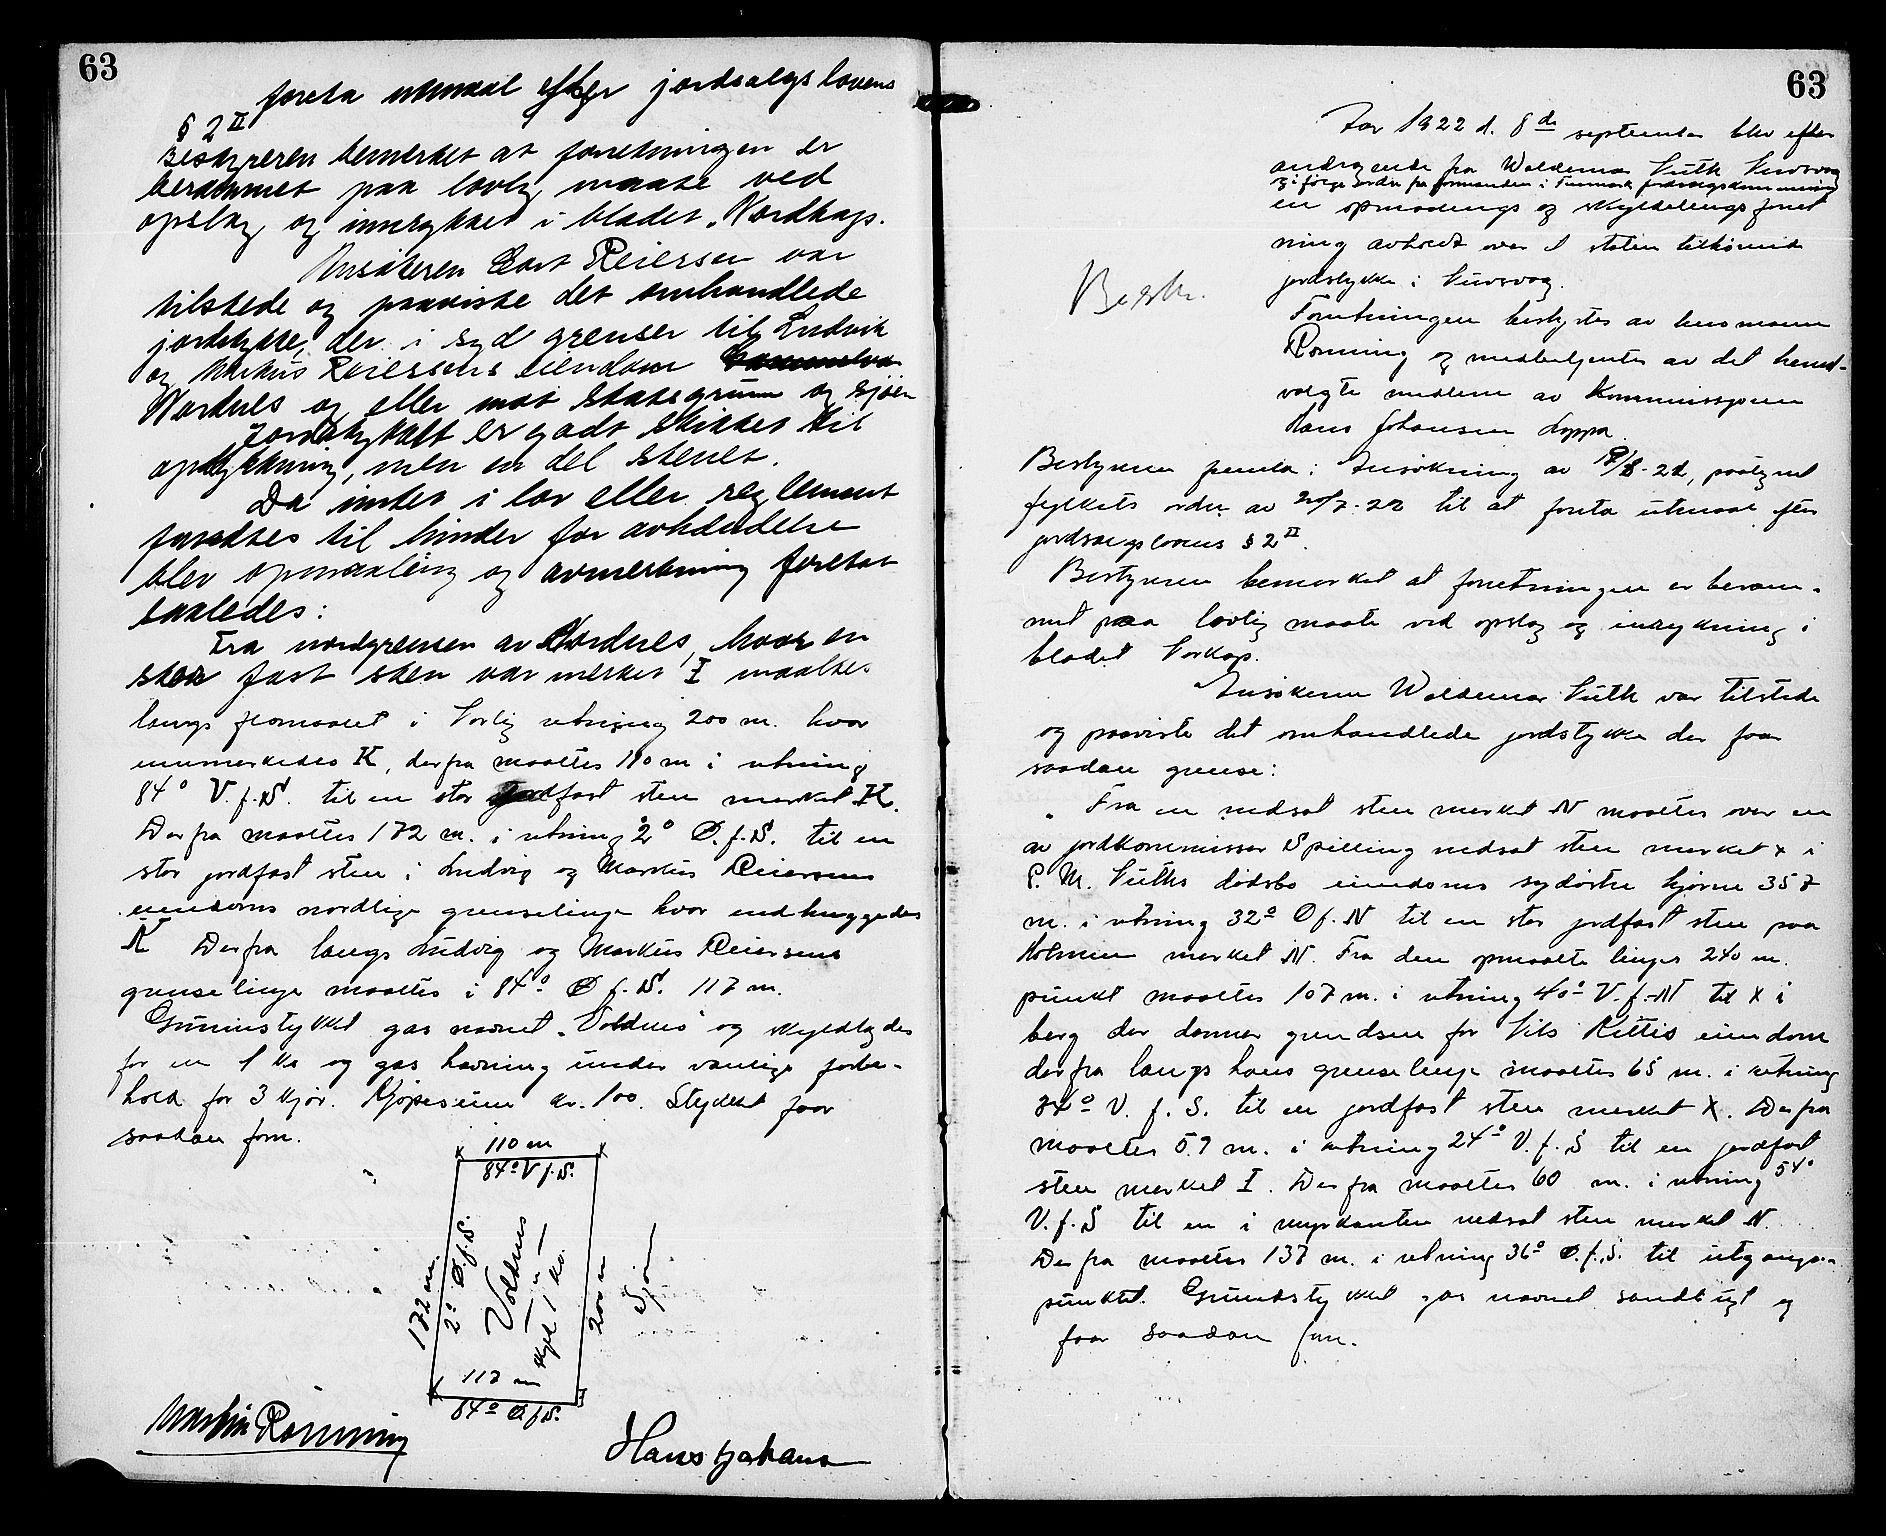 63
foreta utmaal efter jordsalgslovens
§ 2 II
Bestyreren bemerket at forretningen er
berammet paa lovlig maate ved
opslag og innrykket i bladet „Nordkap.
Ansökeren Edvart Reiersen var
tilstede og paaviste det omhandlede
jordstykke, der i syd grenser til Ludvik
og Markus Reiersens eiendom
Nordnes og eller mot statsgrunn og sjöen
Jordstykket er godt skikket til
opdyrkning, men en del stenet.
Da intet i lov eller reglement
fandtes til hinder for avhendelse
blev opmaaling og avmerkning foretat
saaledes:
Fra nordgrensen av Nordnes, hvor en
stor fast sten var merket I maaltes
langs flomaalet i Nordlig retning 200 m. hvor
innmerkedes K, derfra maaltes 110 m i retning
84° V.f.S. til en stor jordfast sten merket K.
Derfra maaltes 172 m. i retning 2° Ø.f.S. til en
stor jordfast sten i Ludvig og Markus Reiersens
eiendoms nordlige grenselinje hvor indhuggedes
N Derfra langs Ludvig og Markus Reiersens
grenselinje maaltes i 84° Ø f.S. 117 m.
Grunnstykket gas navnet „Voldnes" og skyldlagdes
for en 1 ko og gas havning under vanlige forbe-
hold for 3 kjør. Kjøpesum kr. 100. Stykket faar
saadan form.
110 m
84° V f.S.
172 m
2° Ø.f.S.
Voldnes
skyld 1 ko.
200 m
Sjøen
117 m
84° Ø.f.S.
Martin Rønning
Hans Johans
63
Aar 1922 d. 8de september blev efter
andragende fra Waldemar
og ifølge ordre fra formanden i Finmark jordsalgskommission
en opmaalings og skyldelings forret
ning avholdt over et staten tilhørende
jordstykke i
Forretningen bestyrtes av
Rønning og medbetjentes av det herreds-
valgte medlem av Kommissjonen
Hans Johansen Loppa
Besk.
Bestyreren fremla: Ansøkning av /8-21, paategnet
fylkets ordre av 20/7-22 til at foreta utmaal efter
jordsalgslovens § 2 II.
Bestyreren bemerket at forretningen er beram-
met paa lovlig maate ved opslag og inrykning i
bladet Norkap.
Ansøkeren Waldemar var tilstede
og paaviste det omhandlede jordstykke der faar
saadan grense:
„ Fra en nedsat sten merket N maaltes over en
av jordkommissær Spilling nedsat sten merket x i
P. M. dødsbo eiendoms sydøstre hjørne 357
m. i retning 32° Ø f. N til en stor jordfast sten paa
Holmen merket N. Fra den opmaalte linjes 240 m.
punkt maaltes 107 m. i retning 40° V. f. N til X i
berg der danner grendsen for Nils eiendom
derfra langs hans grenselinje maaltes 65 m. i retning
74° V. f. S. til en jordfast sten merket X. Derfra
maaltes 57 m. i retning 24° V. f. S til en jordfast
sten merket I. Derfra maaltes 60 m. i retning 54°
V. f. S til en i myrkanten nedsat sten merket N.
Derfra maaltes 137 m. i retning 36° Ø.f.S. til utgangs-
punktet. Grundstykket gas navnet og
faar saadan form.